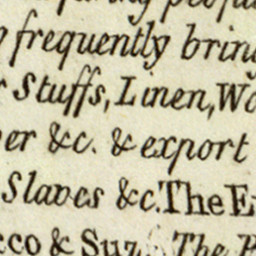 frequently bring
Stuffs, Linen, Wo
er &c. & export
Slaves &c. The E
cco & Suz. The